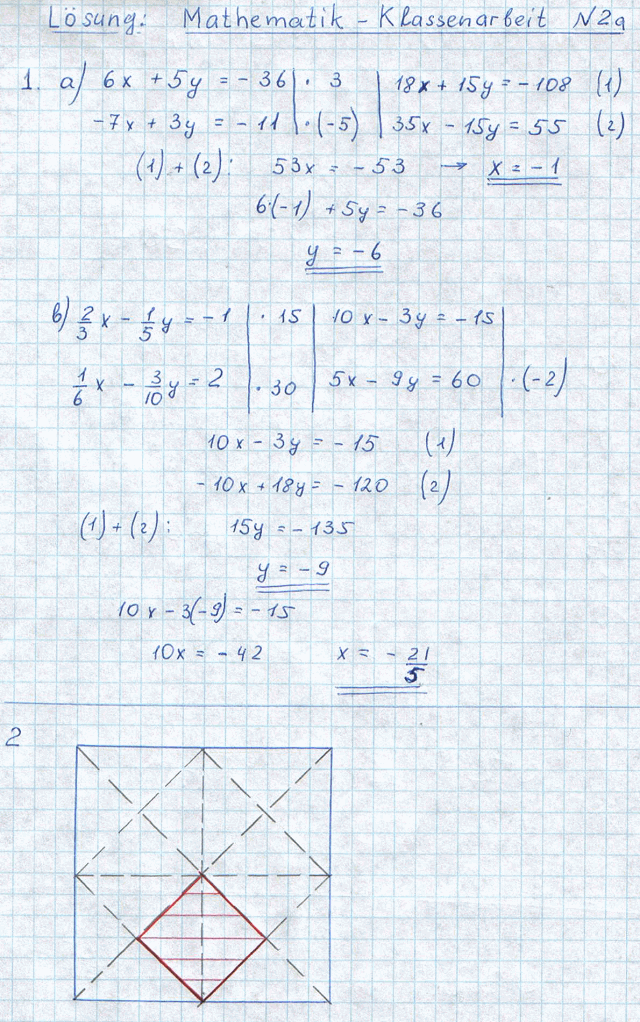 Lösung: Mathematik - Klassenarbeit N2a
1. a) 6x + 5y = - 36 | · 3 | 18x + 15y = - 108 (1)
-7x + 3y = - 11 | · (-5) | 35x - 15y = 55 (2)
(1) + (2): 53x = - 53 → x = - 1
6·(-1) + 5y = - 36
y = - 6
b) 2/3 x - 1/5 y = - 1 | · 15 | 10x - 3y = - 15 |
1/6 x - 3/10 y = 2 | · 30 | 5x - 9y = 60 | · (-2)
10x - 3y = - 15 (1)
- 10x + 18y = - 120 (2)
(1) + (2): 15y = - 135
y = - 9
10x - 3(-9) = - 15
10x = - 42 x = - 21/5
2